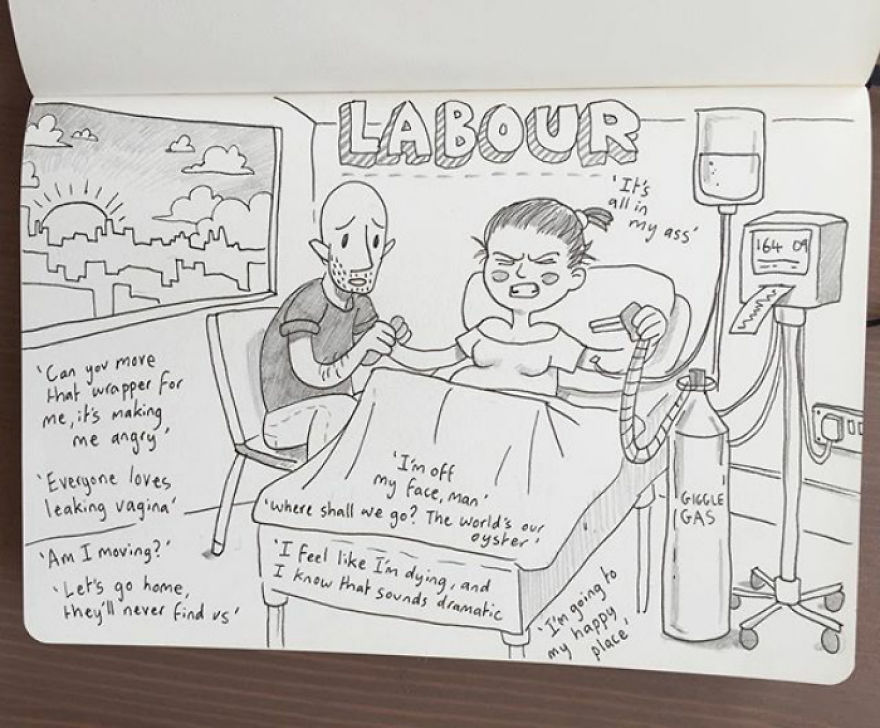 LABOUR
'It's
all in
my ass'
164 09
'Can you move
that wrapper for
me, it's making
me angry'
'Everyone loves
leaking vagina'
'Am I moving?'
'Let's go home,
they'll never find us'
'I'm off
my face, man'
'Where shall we go? The world's our
oyster'
'I feel like I'm dying, and
I know that sounds dramatic
GIGGLE
GAS
'I'm going to
my happy
place'